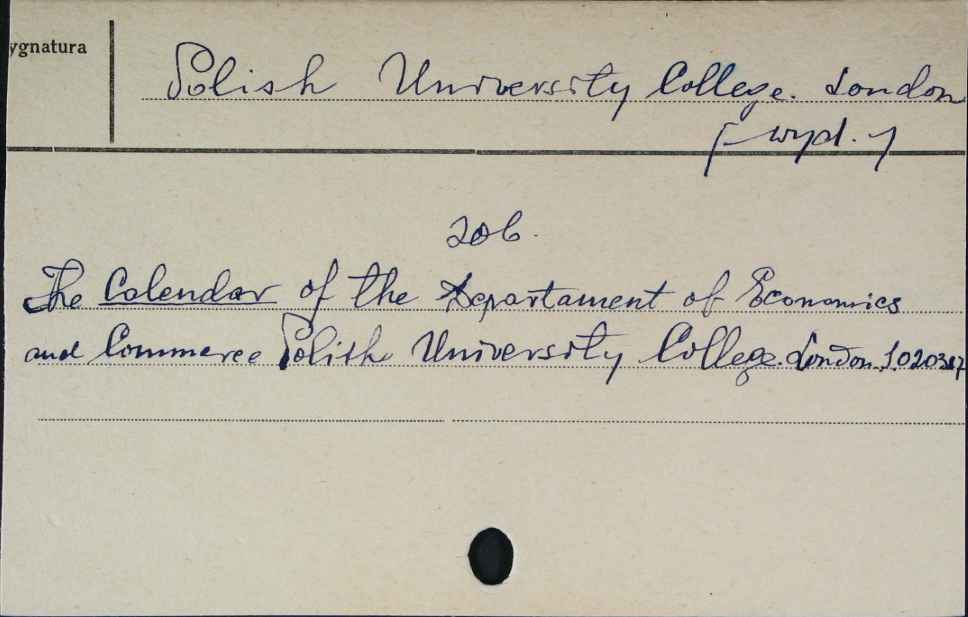 ygnatura
Polish University College. London
[wyd.]
zob.
The Calendar of the Departament of Economics
and Commerce Polish University College. London. S.020387